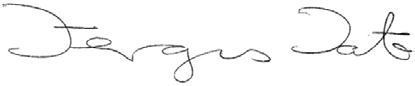 Fergus Tate